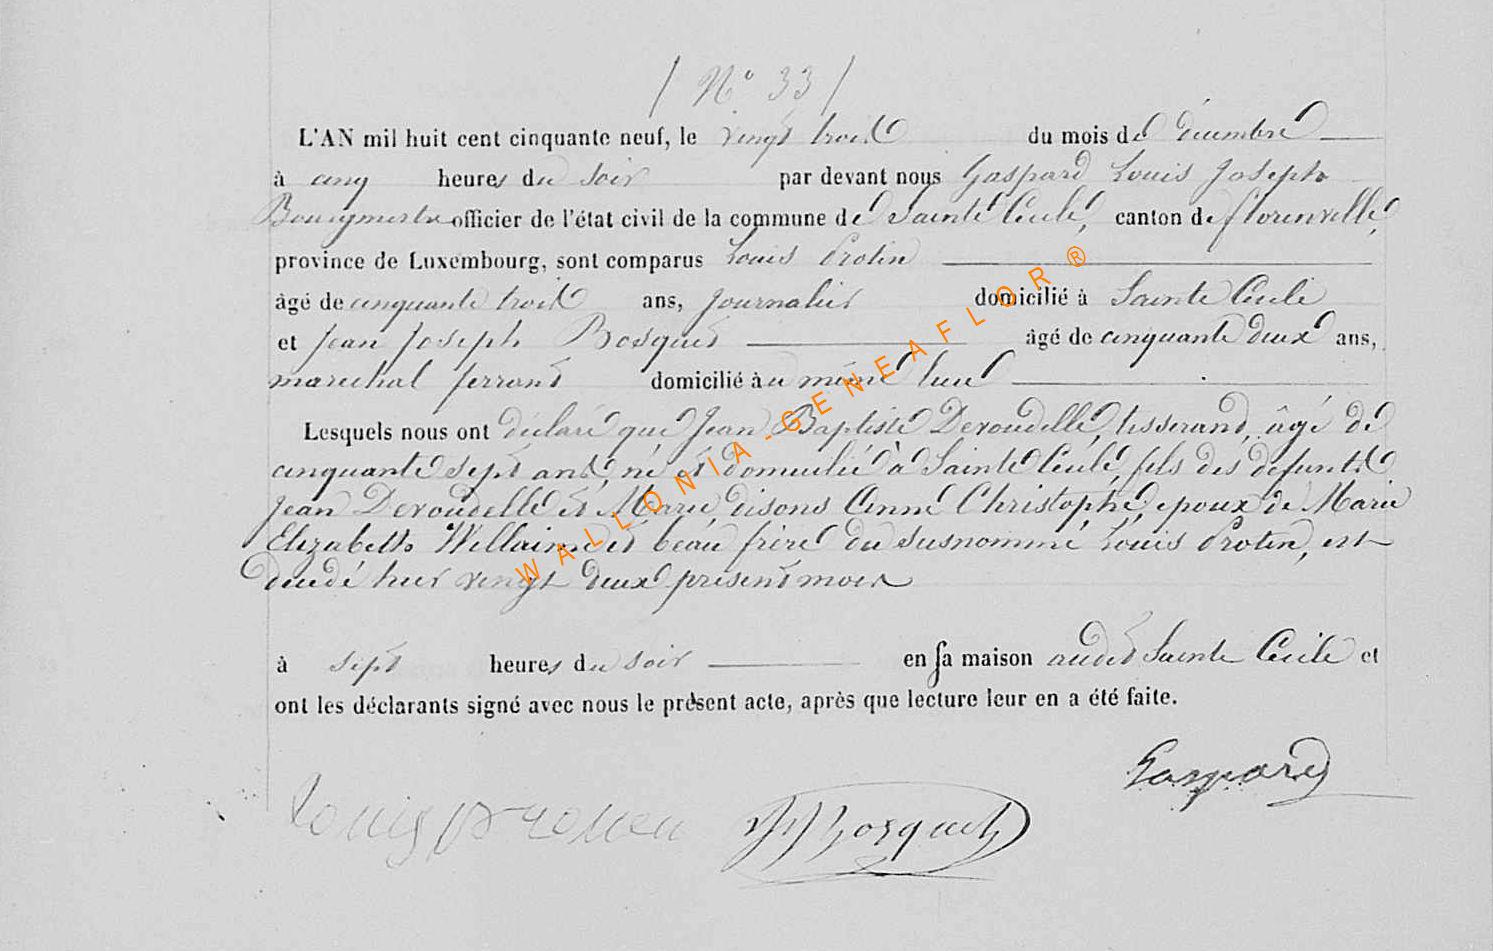 / N° 33 /
L'AN mil huit cent cinquante neuf, le vingt trois du mois de décembre
à cinq heures du soir par devant nous Gaspard Louis Joseph
Bourgmestre officier de l'état civil de la commune de Sainte Cécile, canton de florenville,
province de Luxembourg, sont comparus Louis Protin
âgé de cinquante trois ans, Journalier domicilié à Sainte Cécile
et Jean Joseph Bosquet âgé de cinquante deux ans,
marechal ferrant domicilié au même lieu
Lesquels nous ont déclaré que Jean Baptiste Devoudelle, tisserand, âgé de
cinquante sept ans, né et domicilié à Sainte Cécile, fils des défunts
Jean Devoudelle et Marie disons Anne Christophe, epoux de Marie
Elizabeth Willaime et beau frère du susnommé Louis Protin, est
décédé hier vingt deux présent mois
à sept heures du soir en sa maison audit Sainte Cécile et
ont les déclarants signé avec nous le présent acte, après que lecture leur en a été faite.
Gaspard
Louis protin JJ Bosquet
WALLONIA-GENEAFLOR®